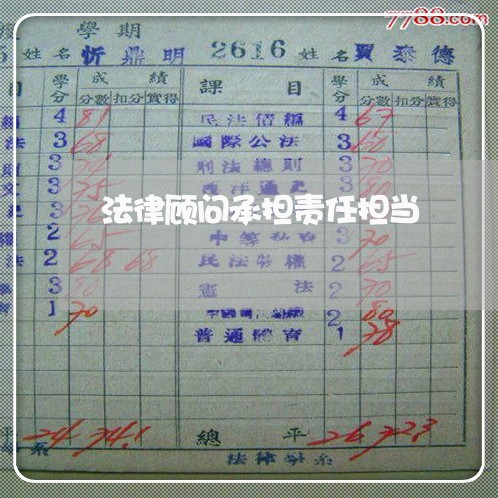 7788.com
學期
姓名 忻鼎明 2616 姓名 賈泰德
目 學分 成績 課目 學分 成績
分數 扣分 實得 分數 扣分 實得
4 81 民法債編 4 67
法 3 68 國際公法 3 60
3 刑法總則 3 70
3 75 西洋通史 3 80
法律顾问承担责任担当
2 65 3 70
法 2 68 68 民法物權 2 65
3 80 憲法 2 70
1 70 2 80
普通體育 1 78
平 24 74.1 總平 26 72.3
系 法律學系